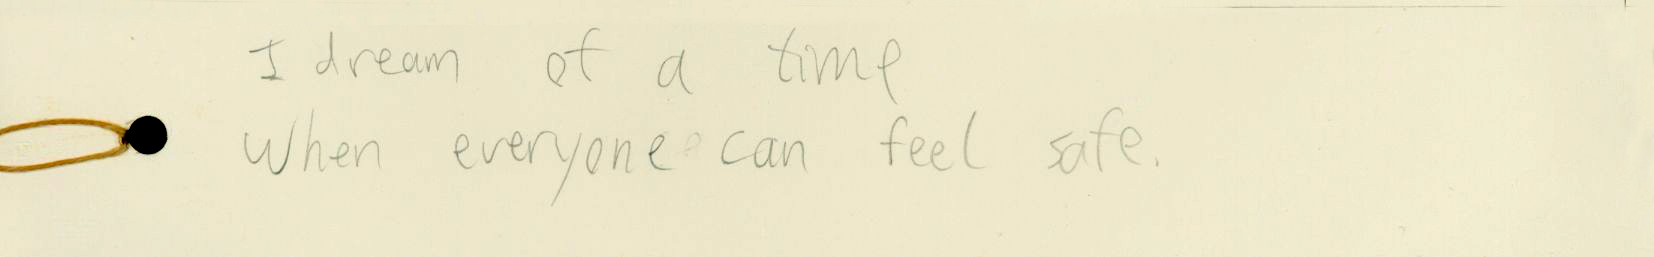 I dream of a time
When everyone can feel safe.